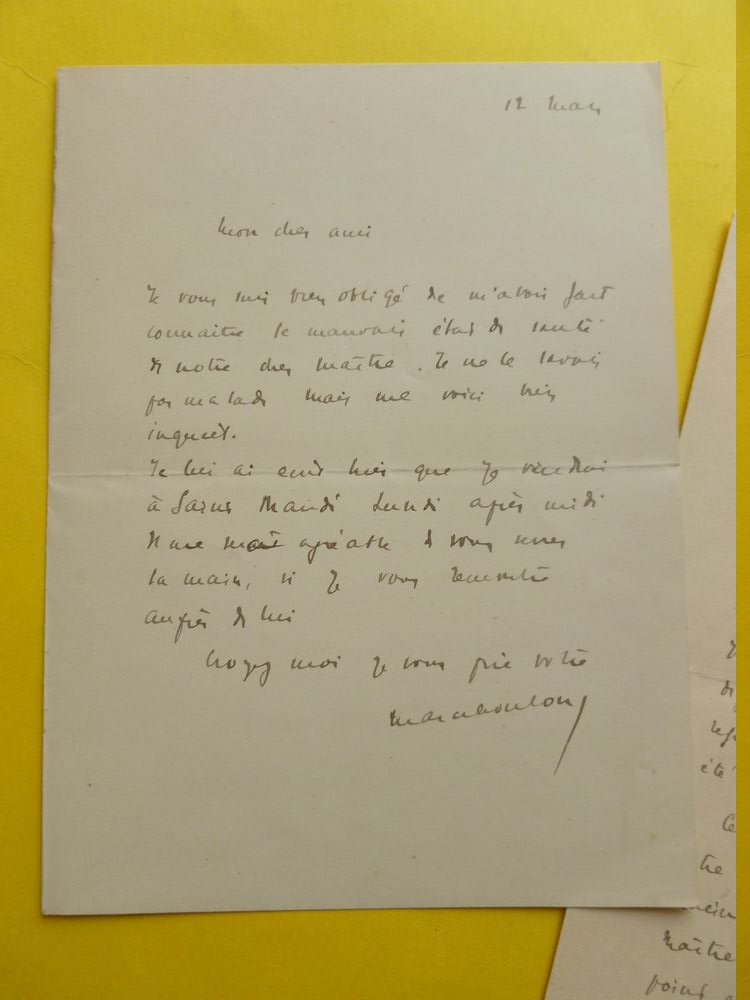 12 Mars
Mon cher ami
Je vous suis bien obligé de m'avoir fait
connaitre le mauvais état de santé
de notre cher maître. Je ne le savais
pas malade mais me voici bien
inquiet.
Je lui ai écrit hier que je viendrai
à Saint Mandé Lundi après midi
Il me serait agréable de vous serrer
la main, si je vous rencontre
auprès de lui
Croyez moi je vous prie votre
été
Ce
tre
Maître
point